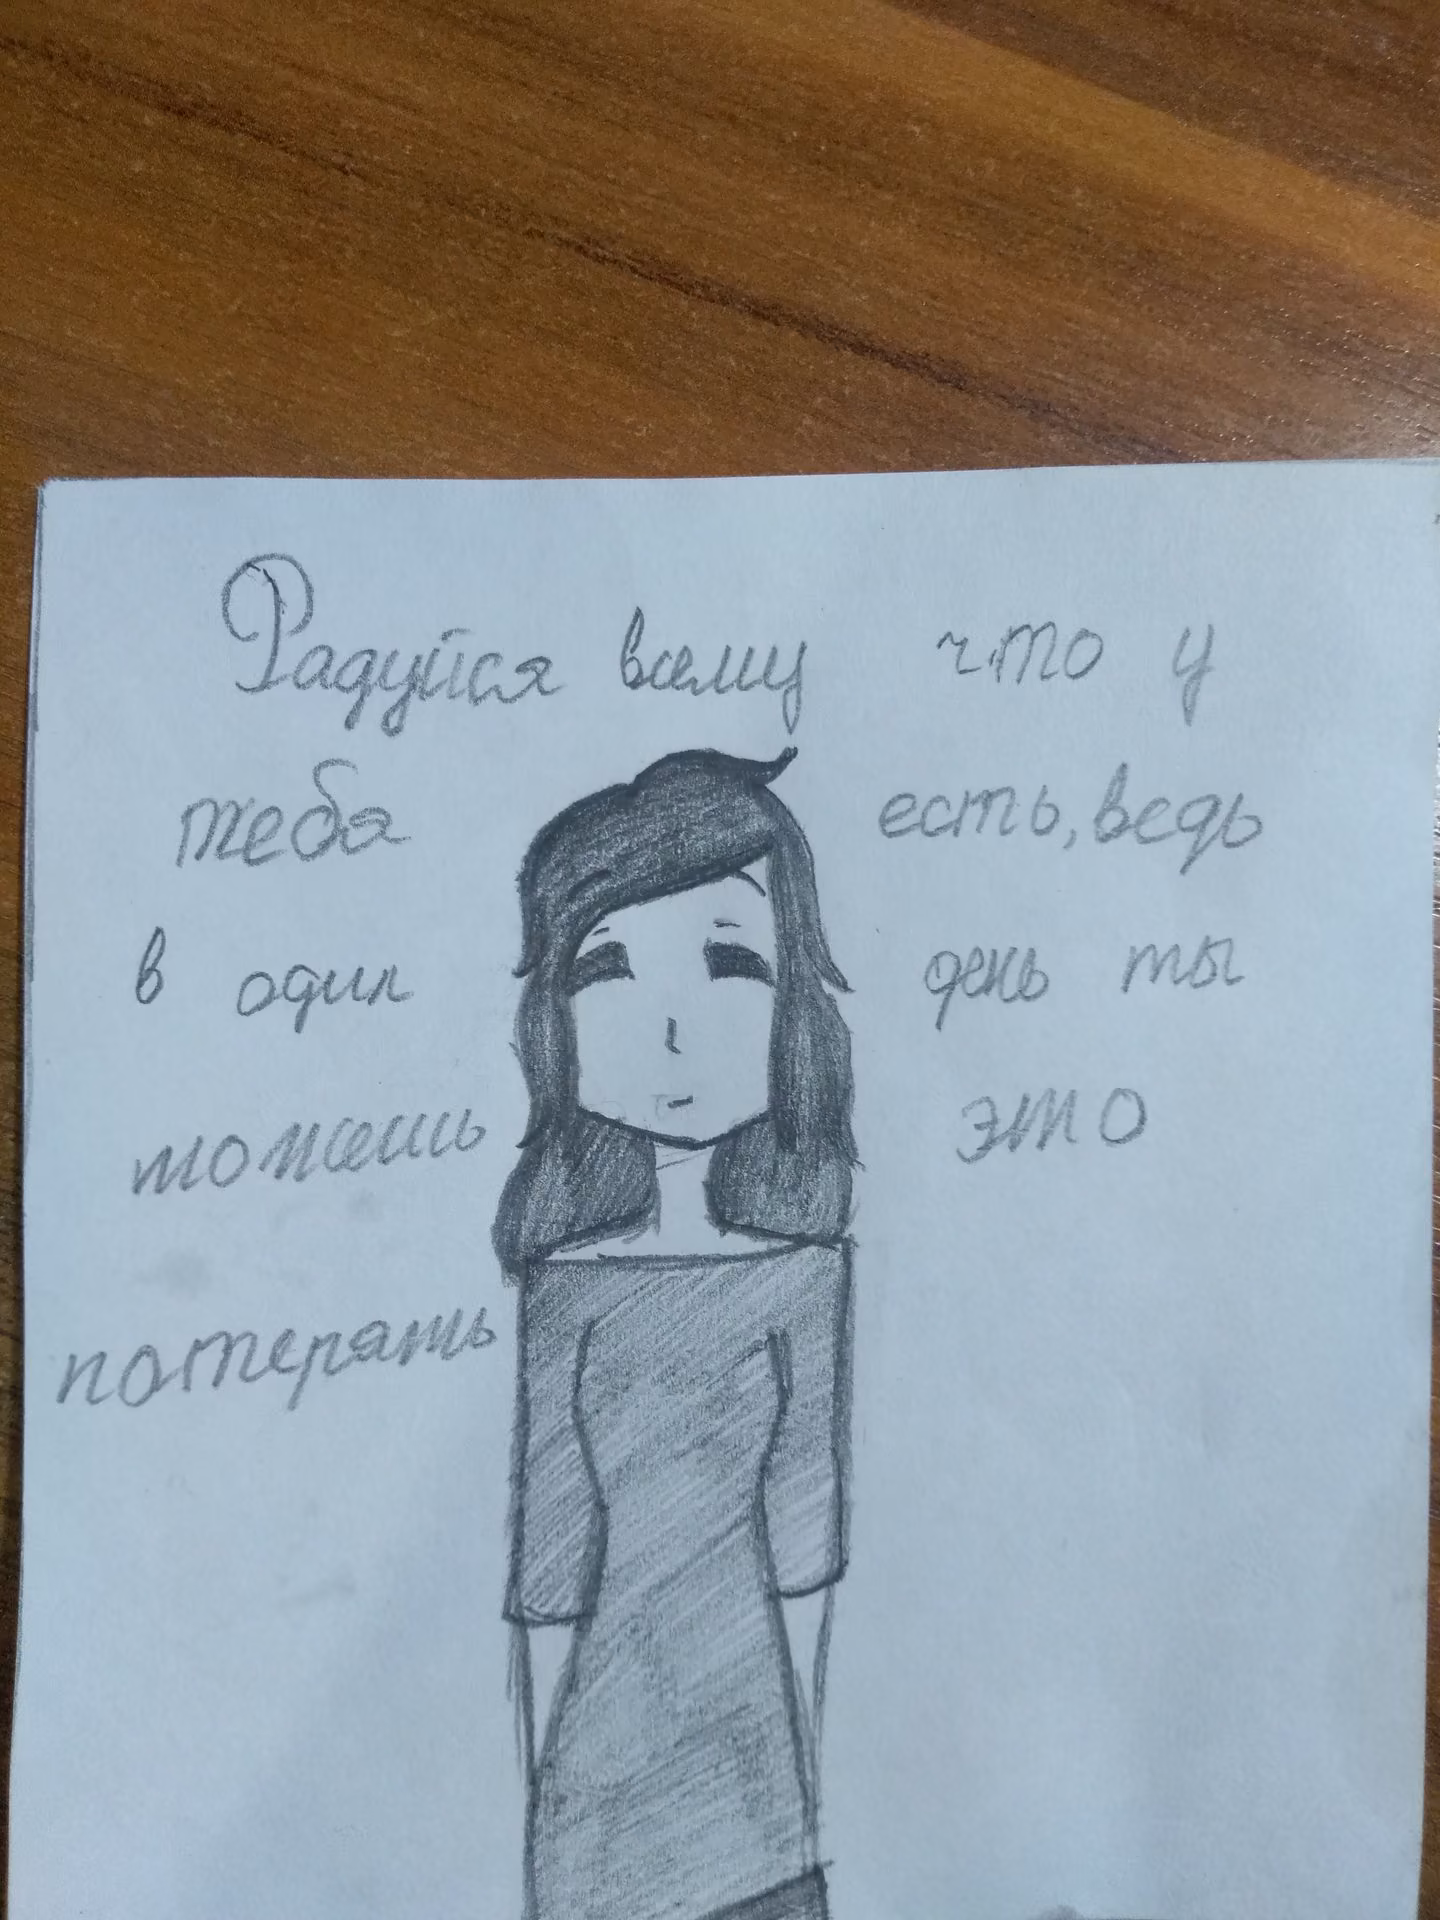 Радуйся всему что у
тебя есть, ведь
в один день ты
можешь это
потерять